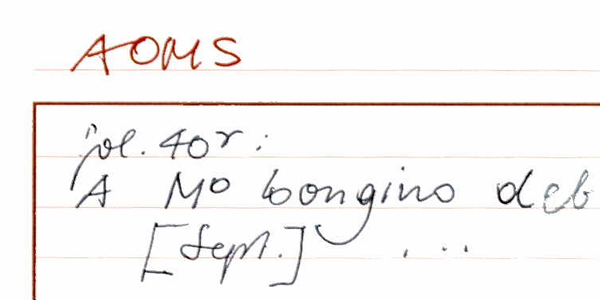 AOMS
fol. 40r:
A Mo bongino deb
[Sept.] ...